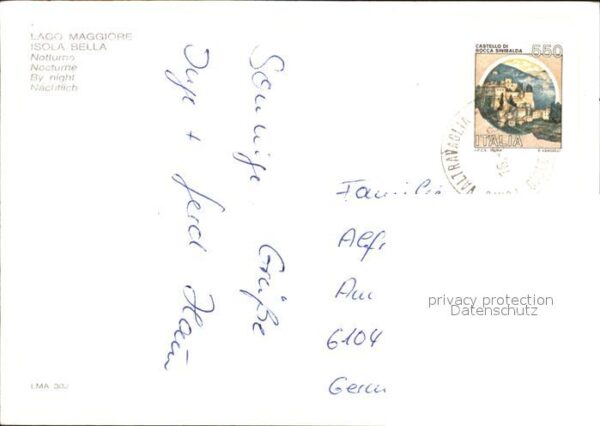 LAGO MAGGIORE
ISOLA BELLA
Notturno
Nocturne
By night
Nächtlich
Sonnige Grüße
Inge + Gerd
CASTELLO DI
ROCCA SINIBALDA
550
ITALIA
VALTRAVAGLIA
Familie
Alf
Am
6104
Germ
privacy protection
Datenschutz
LMA 302